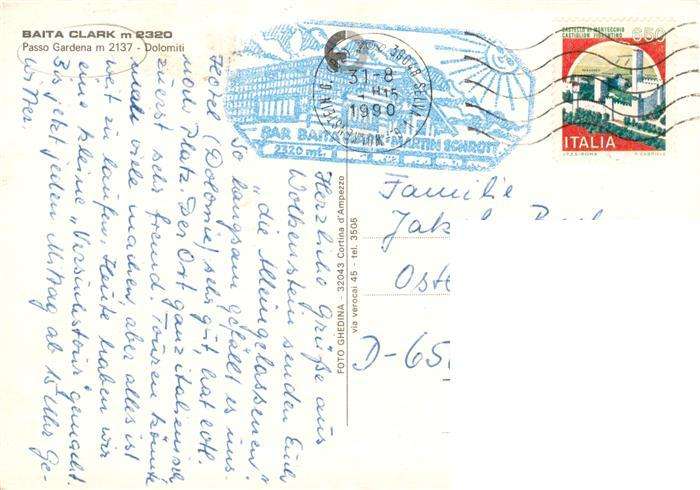 BAITA CLARK m 2320
Passo Gardena m 2137 - Dolomiti
Herzliche Grüße aus
Wolkenstein senden Euch
"die Alleingelassenen".
So langsam gefällt es uns.
Hotel (Dolomie) sehr gut, hat evtl.
noch Platz. Der Ort ganz italienisch
zuerst sehr fremd. Touren könnte
man viele machen aber alles ist
weit zu laufen. Heute haben wir
eine kleine "Versuchstour" gemacht.
Bis jetzt jeden Mittag ab 15 Uhr Ge-
witter.
FOTO GHEDINA - 32043 Cortina d'Ampezzo
via verocai 45 - tel. 3506
38048 SELVA
31-8
1990
BAR BAITA CLARK MARTIN SCHROTT
2320 mt.
CASTELLO DI MONTECCHIO
CASTIGLION FIORENTINO
650
ITALIA
I.P.Z.S. - ROMA
Familie
Jak
Oste
D-65